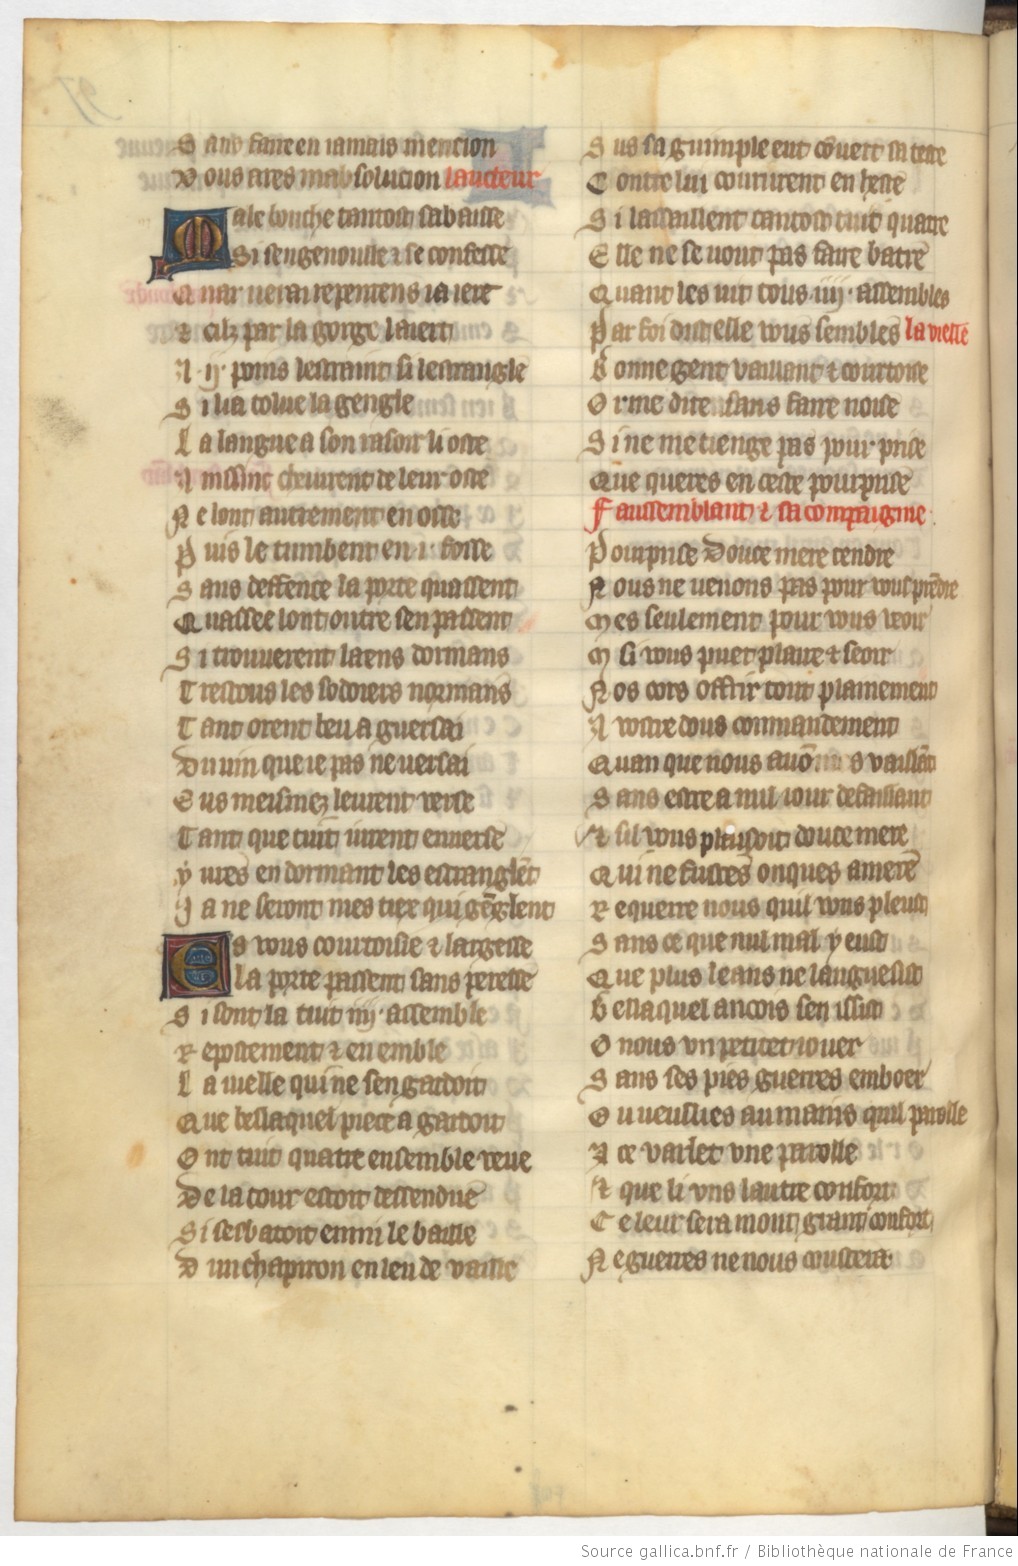 Sans faire en iamais mencion
Vous ares mabsolucion laucteur
Male bouche tantost sabaisse
Si sengenoulle & se confesse
Quar verai repentens ia iere
& cilz par la gorge laiert
A .ij. poins lestraint si lestrangle
Si lia tolue la gengle
La langue a son rasoir li oste
Ainssint chevirent de leur oste
Ne lont autrement en osse
Puis le tumbent en .i. fosse
Sans deffence la porte quassent
Quassee lont outre sen passent
Si trouverent laens dormans
Trestous les sodoiers normans
Tant orent beu a guersai
Du vin que ie pas ne versai
Eus meismez leurent verse
Tant que tuit iurent enverse
Yvres en dormant les estranglēt
Ja ne seront mes tiex qui gēglent
Es vous courtoisie & largesse
La porte passent sans peresse
Si sont la tuit .iiij. assemble
Repostement & en emble
La vielle qui ne sen gardoit
Que bellaquel piece a gardoit
Ont tuit quatre ensemble veue
De la tour estoit dessendue
Si sesbatoit enmi le baille
Dun chapiron en leu de vaille
Sus sa guimple eut couert sa teste
Contre lui coururent en heste
Si lassaillent tantost tuit quatre
Elle ne se vout pas faire batre
Quant les vit tous .iiij. assembles
Par foi dist elle vous sembles la vielle
Bonne gent vaillant & courtoise
Or me dite sans faire noise
Si ne me tienge pas pour prise
Que queres en ceste pourprise
Faussemblant & sa compaignie
Pourprise douce mere tendre
Nous ne venons pas pour vous prēdre
Mes seulement pour vous veoir
M si vous puet plaire & seoir
Nos cors offrir tout plainement
A vostre dous commandement
Quan que nous avōns vaillāt
Sans estre a nul iour defaillant
Et sil vous plaisoit douce mere
Qui ne fustes onques amere
Requerre nous quil vous pleust
Sans ce que nul mal y eust
Que plus leans ne languesist
Bellaquel ancois sen issist
O nous vn petitet iouer
Sans ses pies guerres emboer
Ou veullies au mains quil parolle
A ce varlet vne parolle
Et que li vns lautre confort
Ce leur sera mout grant confort
Ne guerres ne nous coustera
Source gallica.bnf.fr / Bibliothèque nationale de France